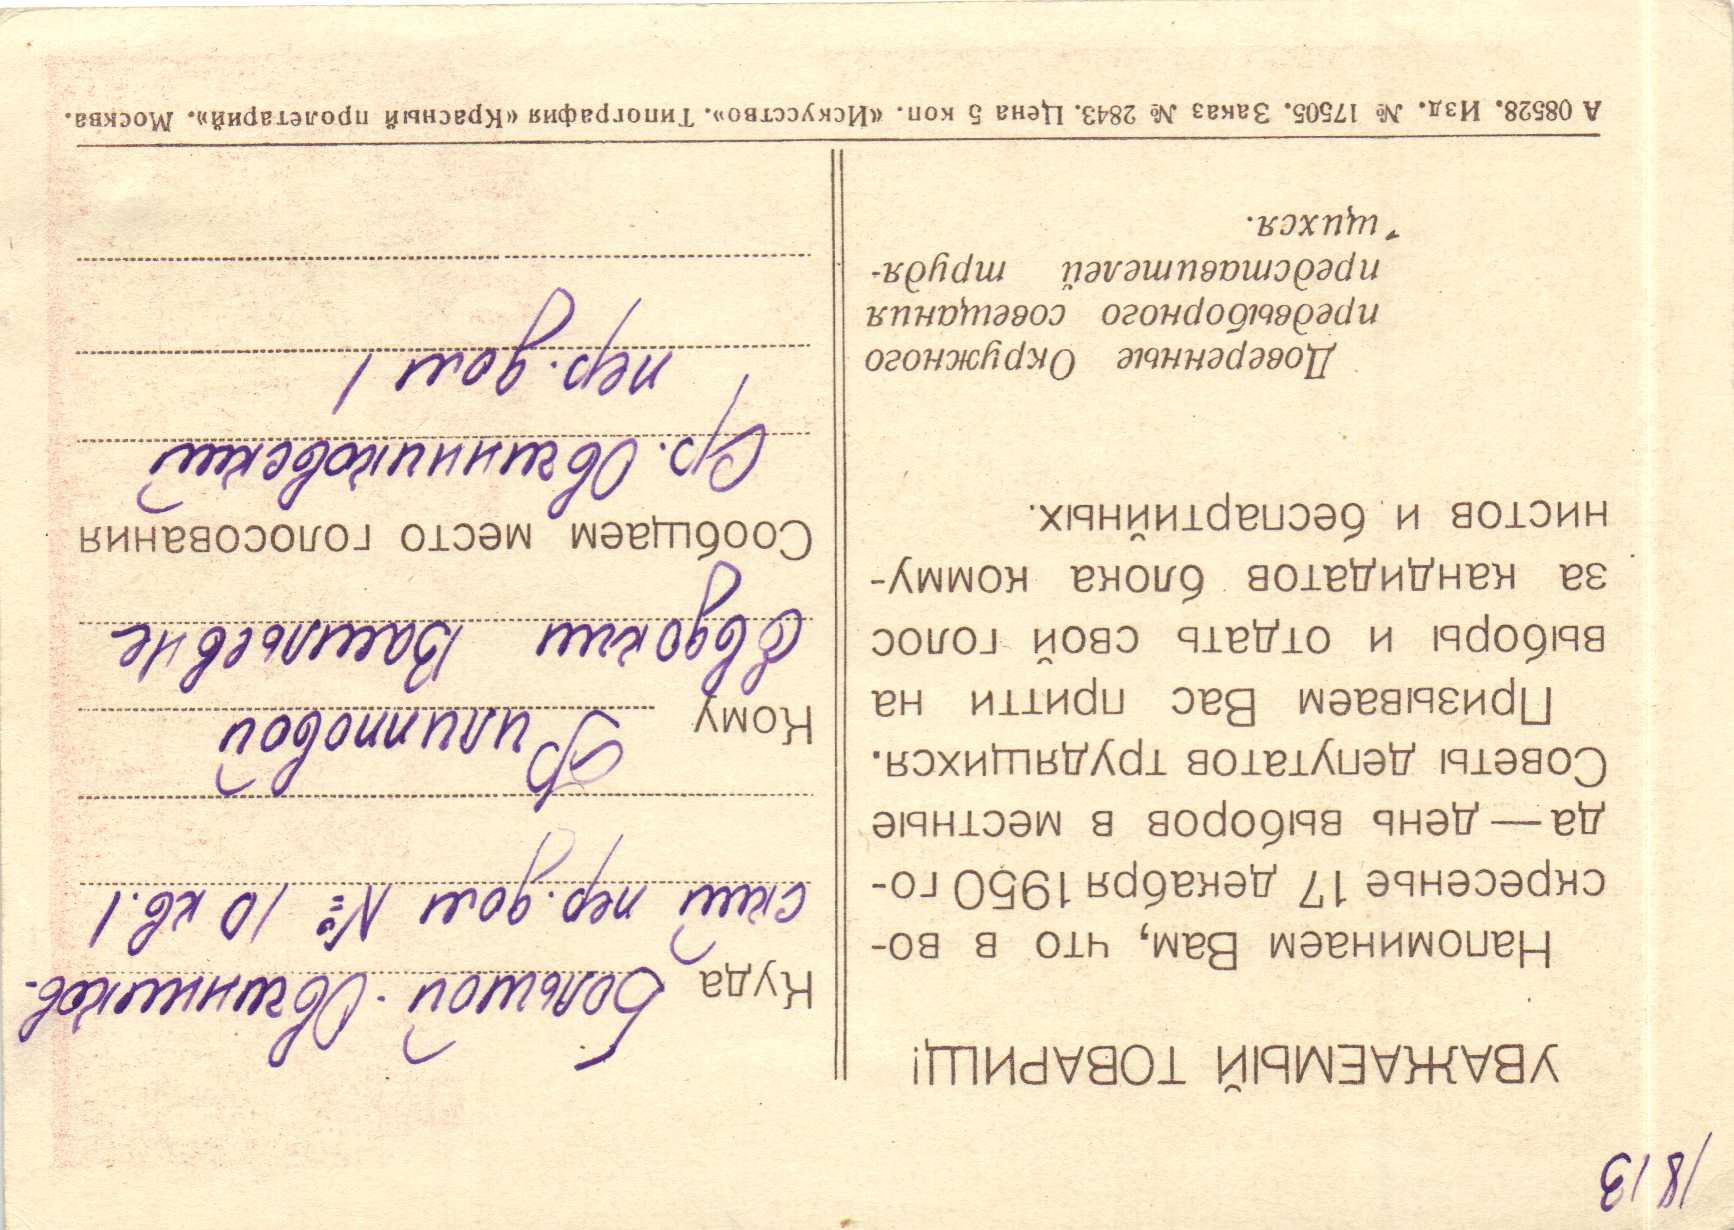 1813
УВАЖАЕМЫЙ ТОВАРИЩ!
Напоминаем Вам, что в во-
скресенье 17 декабря 1950 го-
да — день выборов в местные
Советы депутатов трудящихся.
Призываем Вас притти на
выборы и отдать свой голос
за кандидатов блока комму-
нистов и беспартийных.
Доверенные Окружного
предвыборного совещания
представителей трудя-
щихся.
Куда Большой-Овчинников-
ский пер. дом № 10 кв. 1
Кому Филипповой
Евдокии Васильевне
Сообщаем место голосования
Ср. Овчинниковский
пер. дом 1
А 08528. Изд. № 17505. Заказ № 2843. Цена 5 коп. «Искусство». Типография «Красный пролетарий». Москва.